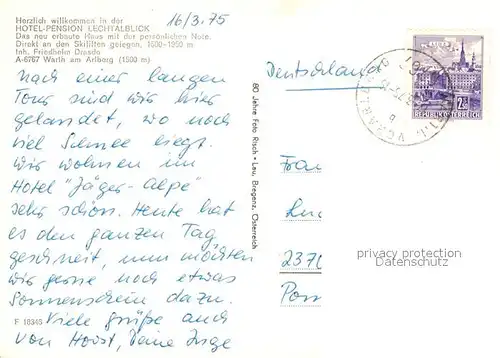 Herzlich willkommen in der
HOTEL-PENSION LECHTALBLICK
Das neu erbaute Haus mit der persönlichen Note.
Direkt an den Skiliften gelegen, 1500-1950 m
Inh. Friedhelm Drasdo
A-6767 Warth am Arlberg (1500 m)
16/3.75
Nach einer langen
Tour sind wir hier
gelandet, wo noch
viel Schnee liegt.
Wir wohnen im
Hotel "Jäger-Alpe"
sehr schön. Heute hat
es den ganzen Tag
geschneit, nun möchten
wir gerne noch etwas
Sonnenschein dazu.
Viele Grüße auch
von Horst, Deine Inge
F 18345
80 Jahre Foto Risch • Lau, Bregenz, Österreich
Deutschland
REPUBLIK ÖSTERREICH
Frau
237
privacy protection
Datenschutz